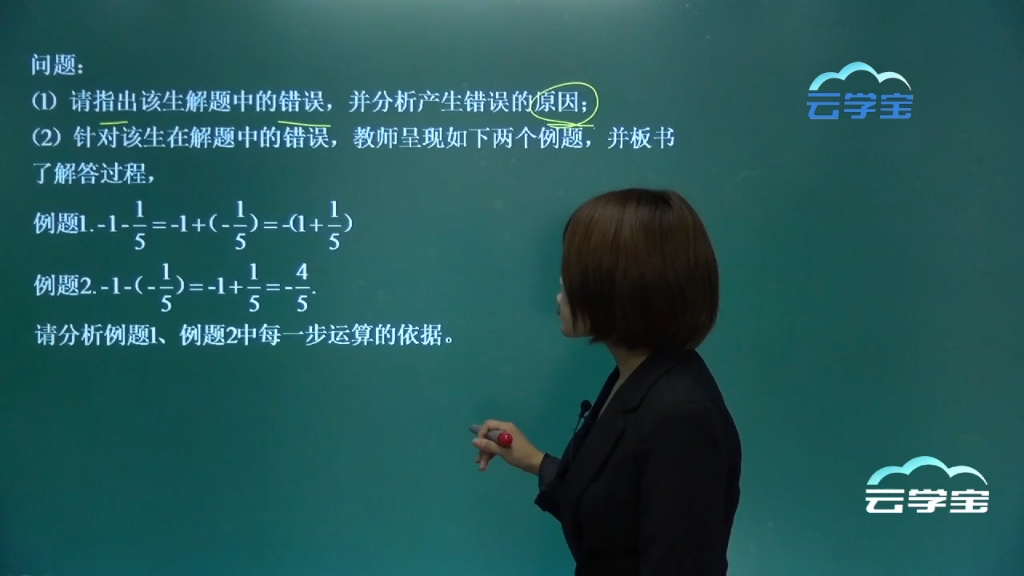 问题：
（1）请指出该生解题中的错误，并分析产生错误的原因；
（2）针对该生在解题中的错误，教师呈现如下两个例题，并板书
了解答过程，
例题1.-1-1/5=-1+(-1/5)=-(1+1/5)
例题2.-1-(-1/5)=-1+1/5=-4/5.
请分析例题1、例题2中每一步运算的依据。
云学宝
云学宝